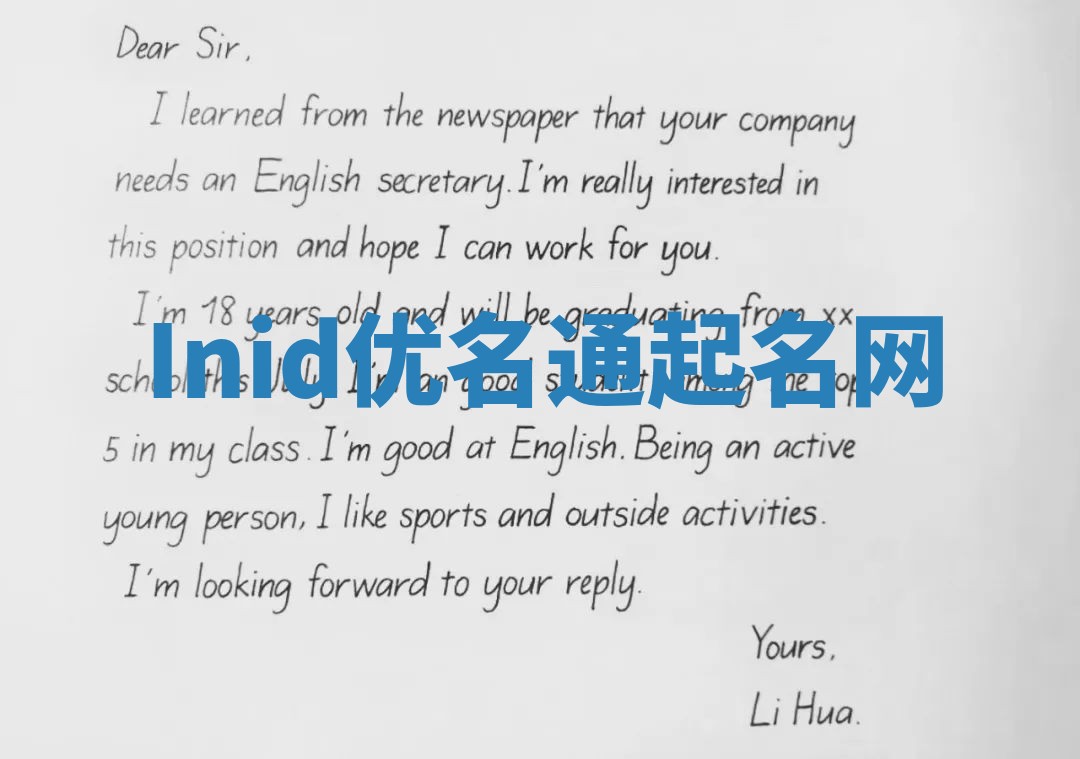 Dear Sir,
I learned from the newspaper that your company
needs an English secretary. I'm really interested in
this position and hope I can work for you.
I'm 18 years old and will be graduating from xx
Inid优名通起名网
school this July. I'm an good student among the top
5 in my class. I'm good at English. Being an active
young person, I like sports and outside activities.
I'm looking forward to your reply.
Yours,
Li Hua.